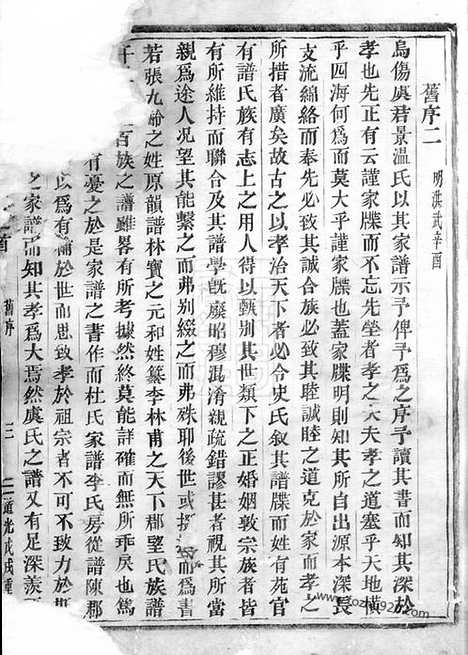 舊序二
明洪武辛酉
烏傷虞君景溫氏以其家譜示予俾予爲之序予讀其書而知其深於
孝也先正有云謹家牒而不忘先塋者孝之大夫孝之道塞乎天地橫
乎四海何爲而莫大乎謹家牒也蓋家牒明則知其所自出源本深長
支流綿絡而奉先必致其誠合族必致其睦誠睦之道克於家而孝之
所措者廣矣故古之以孝治天下者必合史氏叙其譜牒而姓有苑官
有譜氏族有志上之用人得以甄別其世類下之正婚姻敦宗族者皆
有所維持而聯合及其譜學旣廢昭穆混淆親疏錯謬甚者視其所當
親爲途人况望其能繫之而弗別綴之而弗殊耶後世或 而爲書
若張九齡之姓原韻譜林寶之元和姓纂李林甫之天下郡望氏族譜
千 百族之譜雖畧有所考據然終莫能詳確而無所乖戾也篤
有憂之於是家譜之書作而杜氏家譜李氏房從譜陳郡
以爲有補於世而思致孝於祖宗者不可不致力於斯
之家譜而知其孝爲大焉然虞氏之譜又有足深羨
舊序
三
道光戊戌重